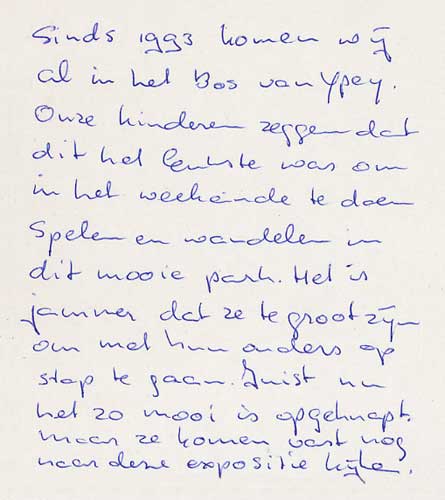 Sinds 1993 komen wij
al in het Bos van Ypey.
Onze kinderen zeggen dat
dit het leukste was om
in het weekeinde te doen
Spelen en wandelen in
dit mooie park. Het is
jammer dat ze te groot zijn
om met hun ouders op
stap te gaan. Juist nu
het zo mooi is opgeknapt.
maar ze komen vast nog
naar deze expositie kijken.